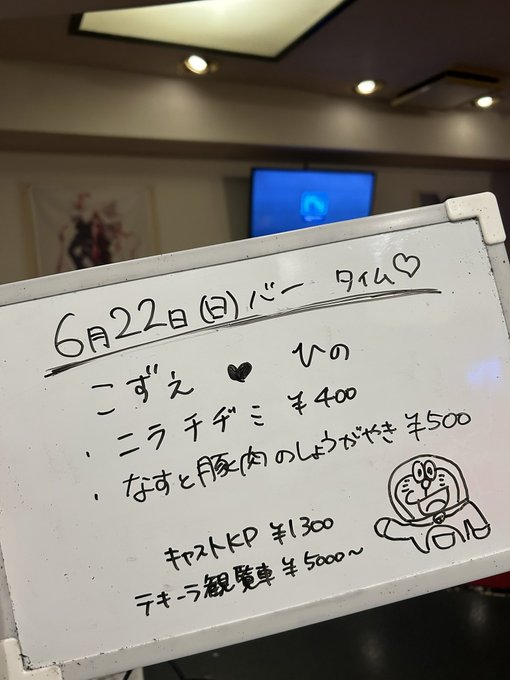 6月22日(日)バー タイム♡
こずえ ♥ ひの
・ニラチヂミ ¥400
・なすと豚肉のしょうがやき ¥500
キャストKP ¥1300
テキーラ観覧車 ¥5000〜